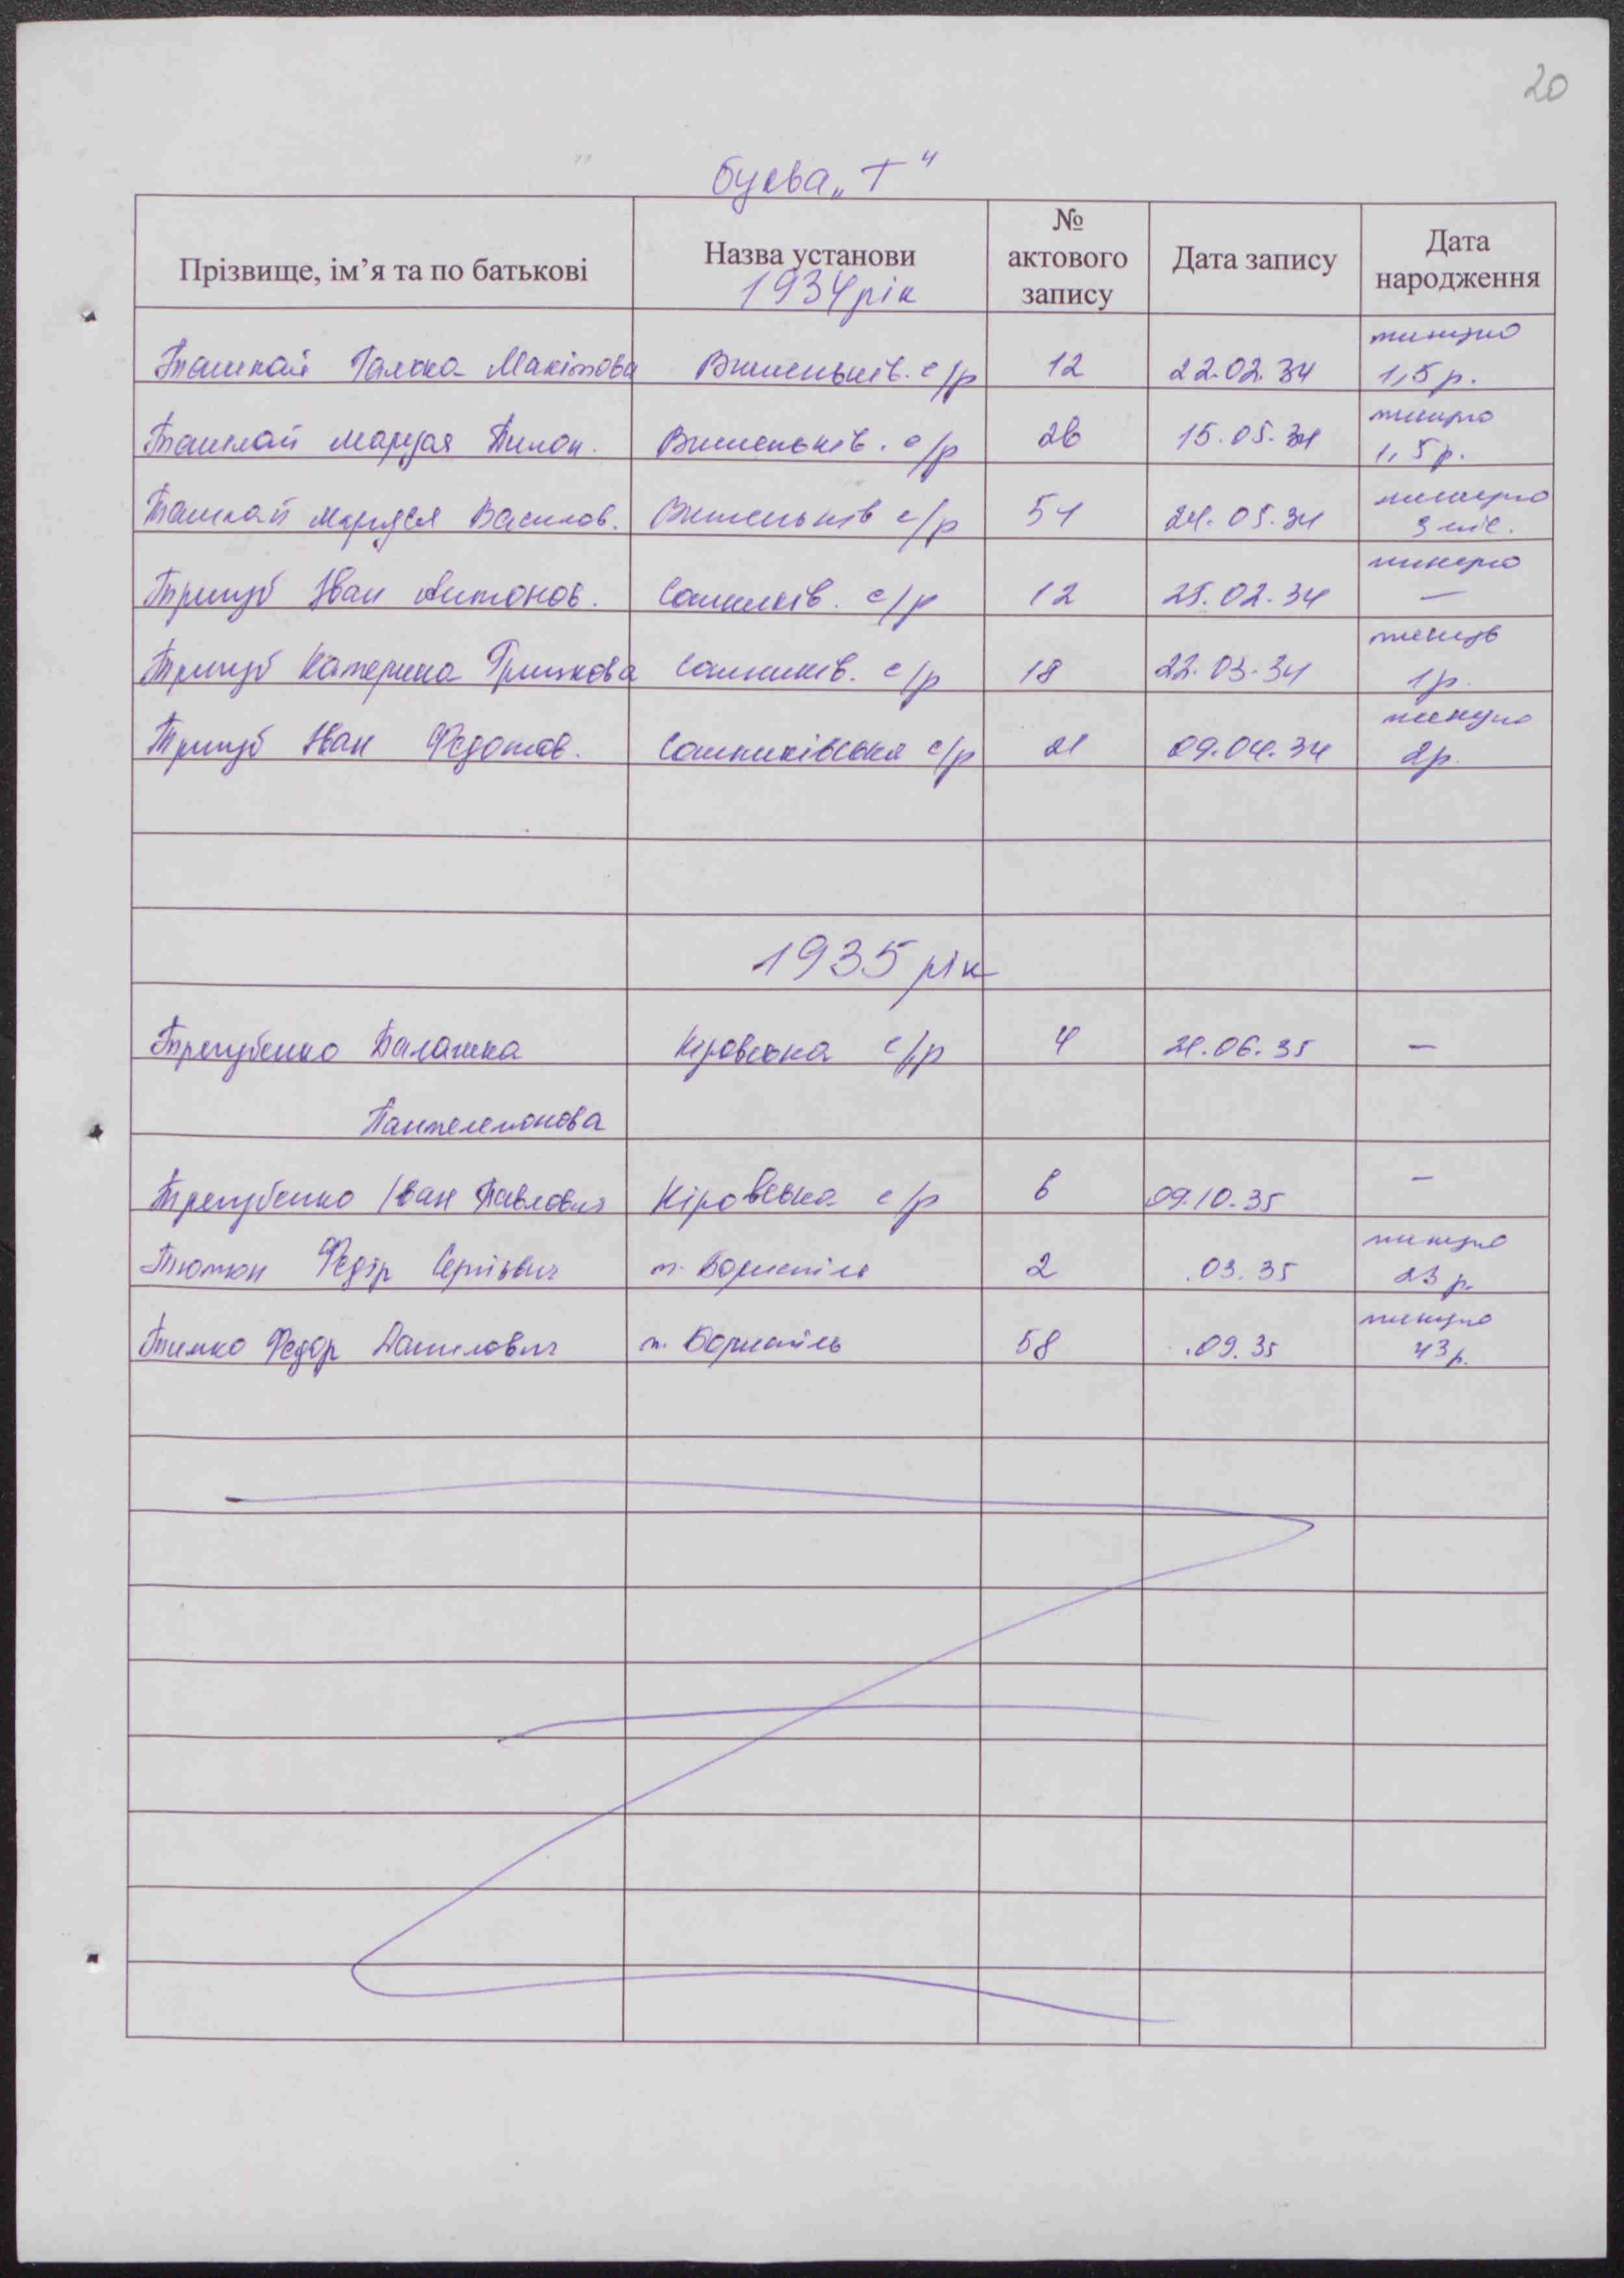 20
буква „Т"
Прізвище, ім'я та по батькові
Назва установи
1934 рік
№
актового
запису
Дата запису
Дата
народження
минуло
Ташкай Галька Микітова Вишеньків. с/р 12 22.02.34 1,5 р.
минуло
Ташкай Маруся Пилон. Вишеньків. с/р 26 15.05.34 1,5 р.
минуло
Ташкай Маруся Василов. Вишеньків с/р 51 24.05.34 3 міс.
минуло
Тригуб Іван Антонов. Сошників. с/р 12 25.02.34 —
минув
Тригуб Катерина Грицкова Сошників. с/р 18 22.03.34 1 р.
минуло
Тригуб Іван Федотов. Сошниківська с/р 21 09.04.34 2 р.
1935 рік
Трегубенко Палажка Кіровська с/р 4 21.06.35 —
Пантелемонова
Трегубенко Іван Павлович Кіровська с/р 6 09.10.35 —
минуло
Тютюн Федір Сергієвич м. Бориспіль 2 .03.35 23 р.
минуло
Тимко Федор Данилович м. Бориспіль 58 .09.35 43 р.